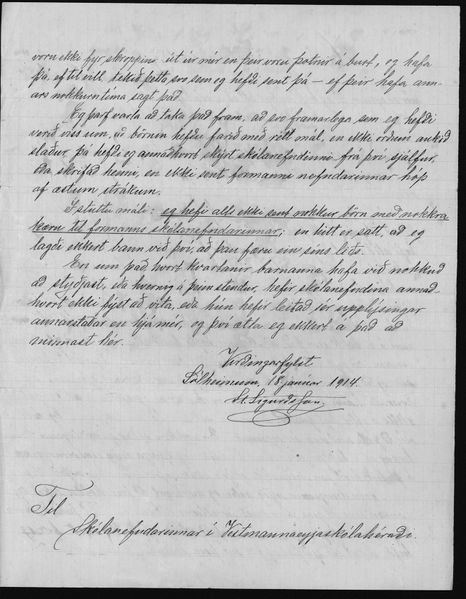 voru ekki fyr skroppin út úr mér en þeir voru þotnir á burt, og hafa
þá, ef til vill tekið þetta svo sem eg hefði sent þá – ef þeir hafa ann-
ars nokkurntíma sagt það.
Eg þarf varla að taka það fram, að svo framarlega sem eg hefði
verið viss um, að börnin hefðu farið með rétt mál, en ekki orðum aukið
slaður, þá hefði eg annaðhvort skýrt skólanefndinni frá því sjálfur,
eða skrifað henni, en ekki sent formanni nefndarinnar hóp
af æstum strákum.
Í stuttu máli: eg hefi alls ekki sent nokkur börn með nokkra
kæru til formanns skólanefndarinnar; en hitt er satt, að eg
lagði ekkert bann við því, að þau færu ein síns liðs.
En um það hvort kvartanir barnanna hafa við nokkuð
að styðjast, eða hvernig á þeim stendur, hefir skólanefndina annað-
hvort ekki fýst að vita, eða hún hefir leitað sér upplýsingar
annarstaðar en hjá mér, og því ætla eg ekkert á það að
minnast hér.
Virðingarfylst
18 janúar 1914.
St. Sigurðsson
Til
Skólanefndarinnar í Vestmannaeyjaskólahéraði.